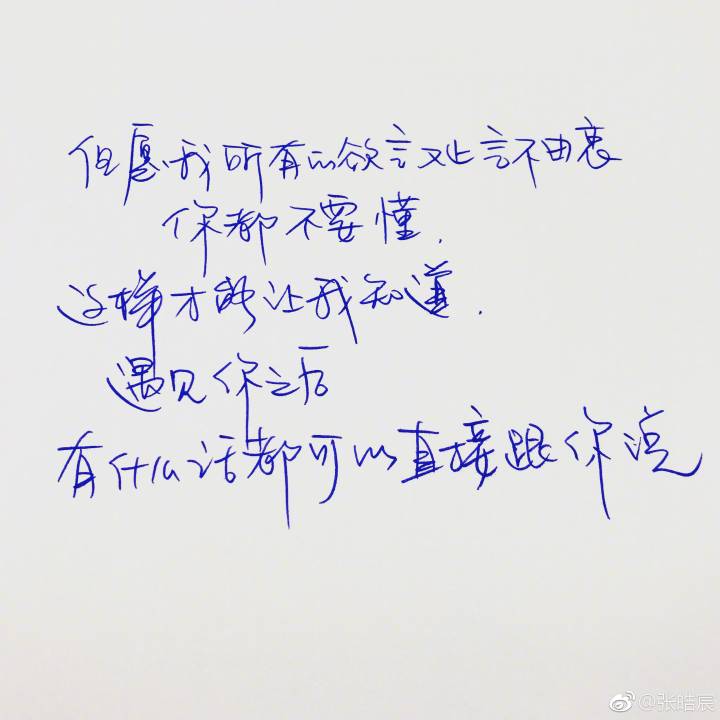 但愿我所有的欲言又止言不由衷
你都不要懂.
这样才能让我知道.
遇见你之后
有什么话都可以直接跟你说
@张皓辰